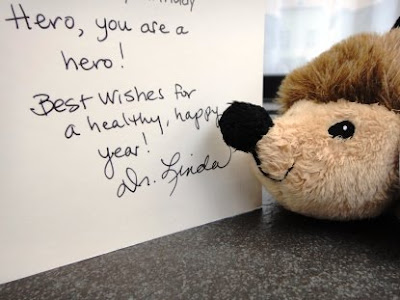 Hero, you are a
hero!
Best Wishes for
a healthy, happy
year!
Dr. Linda